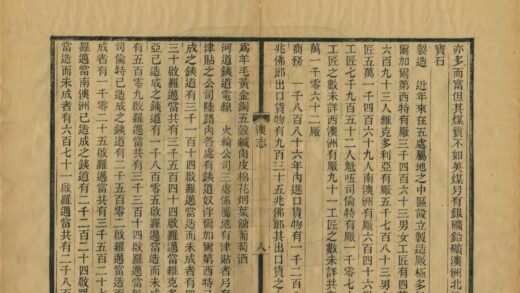 亦多而富但其煤貨不如英煤另有銀礦鉛礦澳洲北
寶石
製造　近年來在五處屬地之中區設立製造廠極多
爾加爾第西特有廠三千四百六十三男女工匠有四萬
六百九十三人維克多利亞有廠五千七百八十三男女
匠五萬一千四百六十九人南澳洲有廠六百四十六
工匠七千九百五十二人魁瓩司倫特有廠一千零七
工匠之數未詳西澳洲有廠九十一工匠之數未詳共
萬一千零六十二廠
商務　一千八百八十六年內進口貨物有一千二百八
兆佛郎出口貨物有九百三十五兆佛郎其出口貨之
澳志
八
爲羊毛黃金銅五穀鹹肉皮棉花烟葉糖葡萄酒
河道鐵道電線　火輪公司三處係屬地有津貼者另有
津貼之公司陸路內各處有鐵道奴浮爾加爾第西特已
成之鐵道有三千一百十四啟羅邁當造而未成者有
三十啟羅邁當共有三千五百四十四啟羅邁當維克多
亞已造成之鐵道有二千八百零五啟羅邁當造而未
有五百零九啟羅邁當共有三千三百十四啟羅邁當
司倫特己造成之鐵道有二千五百零一啟羅邁當造
者有一千零二十五啟羅邁當共有三千五百二十六
羅邁當南澳洲己造成之鐵道有二千二百二十四啟羅
當造而未成者有六百七十一啟羅邁當共有二千八百